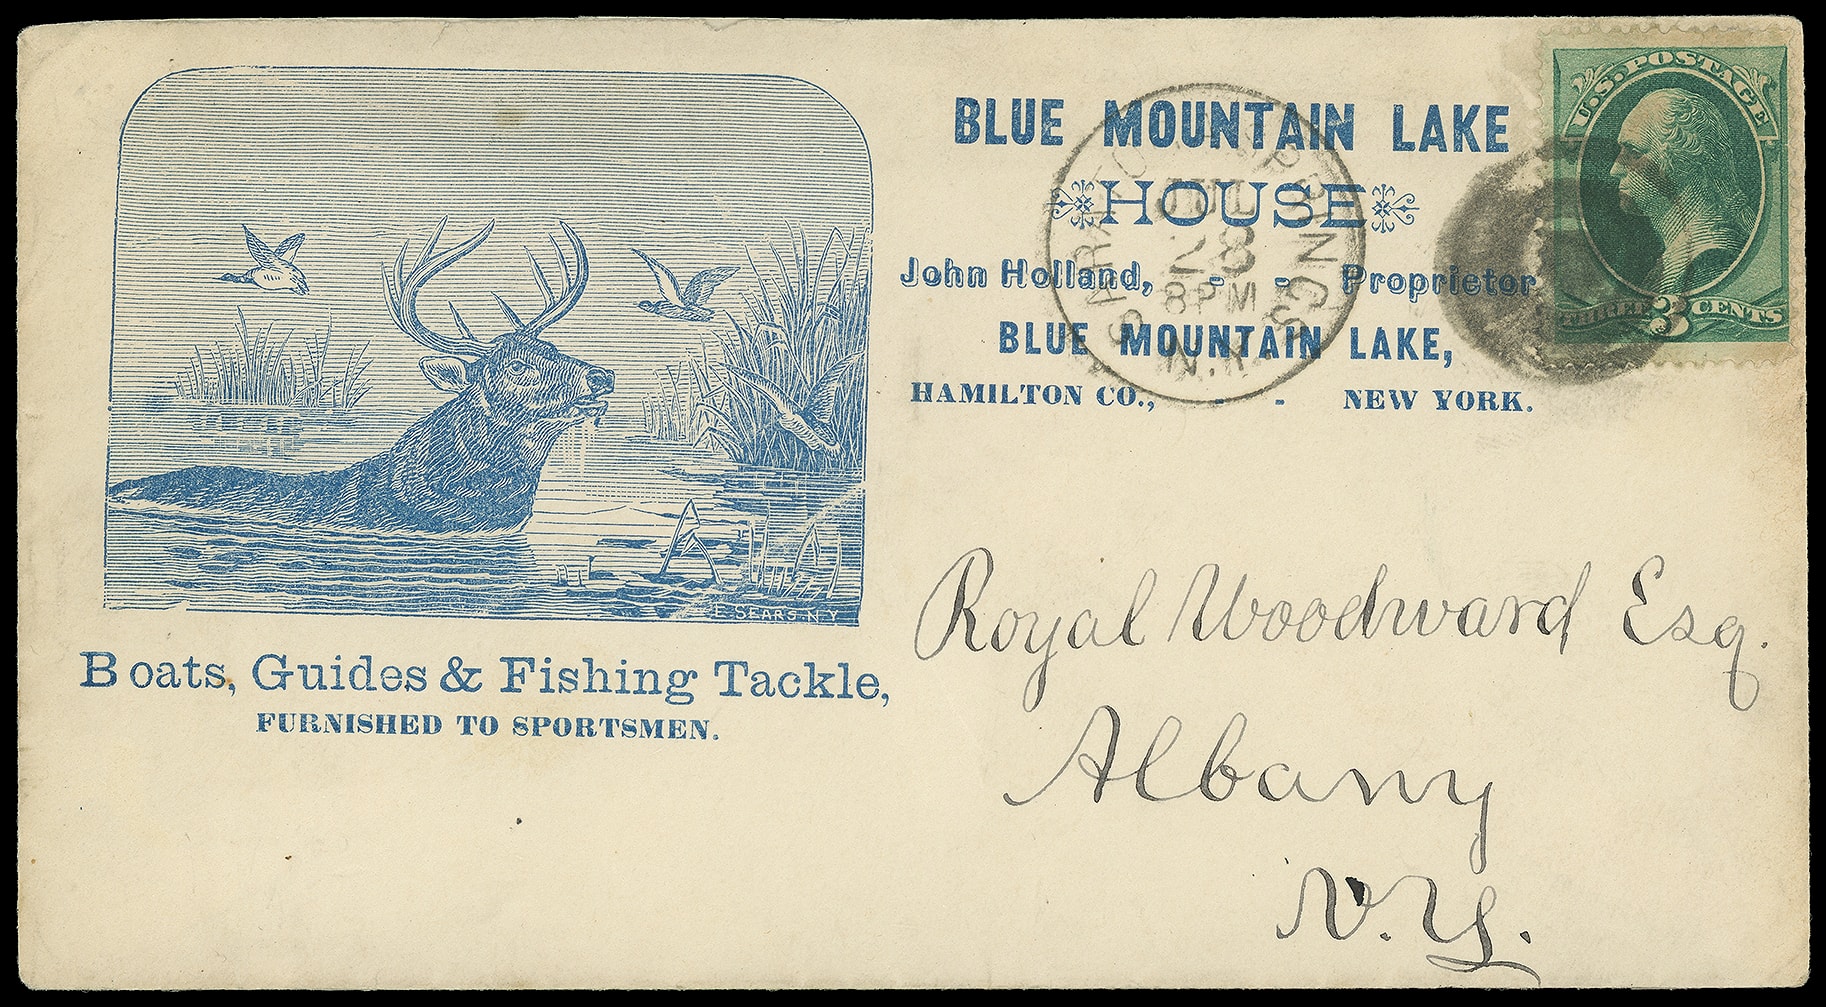 BLUE MOUNTAIN LAKE
HOUSE
John Holland, - - Proprietor
BLUE MOUNTAIN LAKE,
HAMILTON CO., - - NEW YORK.
SARATOGA SPRINGS
JUL
28
8PM
N.Y.
U.S. POSTAGE
THREE 3 CENTS
E SEARS N.Y
Boats, Guides & Fishing Tackle,
FURNISHED TO SPORTSMEN.
Royal Woodward Esq.
Albany
N.Y.